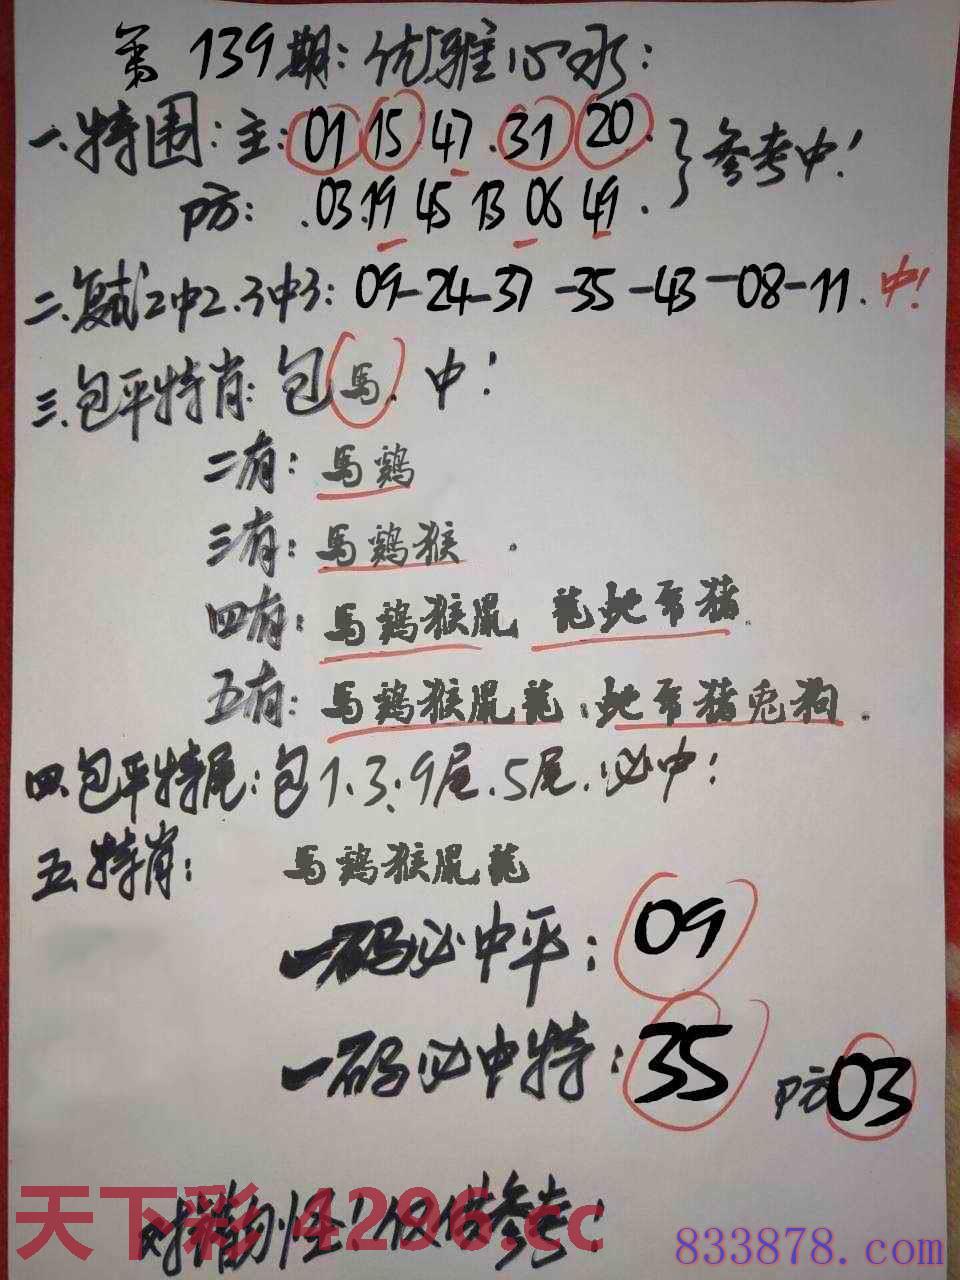 第139期:优雅心水:
一.特围:主:01 15 47.31 20.}参考中!
防:.03.19 45 13 06 49.
二.复式2中2.3中3:09-24-37-35-43-08-11.中!
三.包平特肖:包馬.中!
二有:馬鷄
三有:馬鷄猴.
四有:馬鷄猴鼠 龍蛇 猪.
五有:馬鷄猴鼠龍:蛇 猪兔狗.
四.包平特尾:包1.3:9尾.5尾.必中!
五.特肖:馬鷄猴鼠龍
一码必中平:09
一码必中特:35 防03
天下彩 4296.cc
料 怪!仅供参考!
833878.com